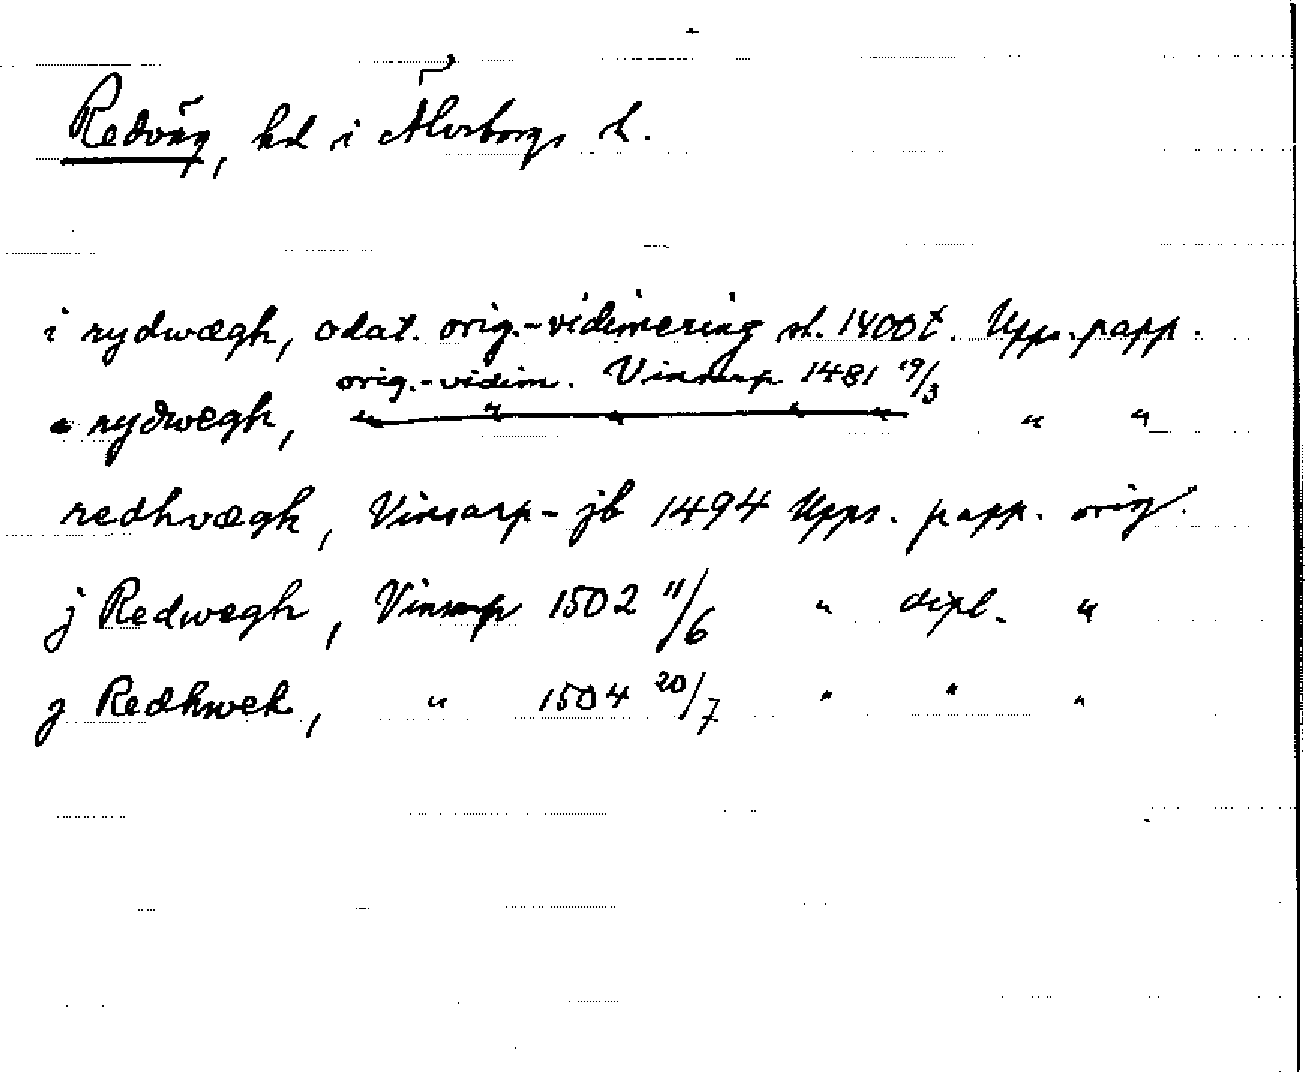 Redväg, hd i Älvsborgs l.
i rydwægh, odat. orig.-vidimering sl. 1400t. Upps. papp.
orig.-vidim. Vinsarp 1481 19/3
" rydwegh, " " " " " " "
redhvægh, Vinsarp-jb 1494 Upps. papp. orig.
j Redwegh, Vinsarp 1502 11/6 " dipl. "
j Redhwek, " 1504 20/7 " " "